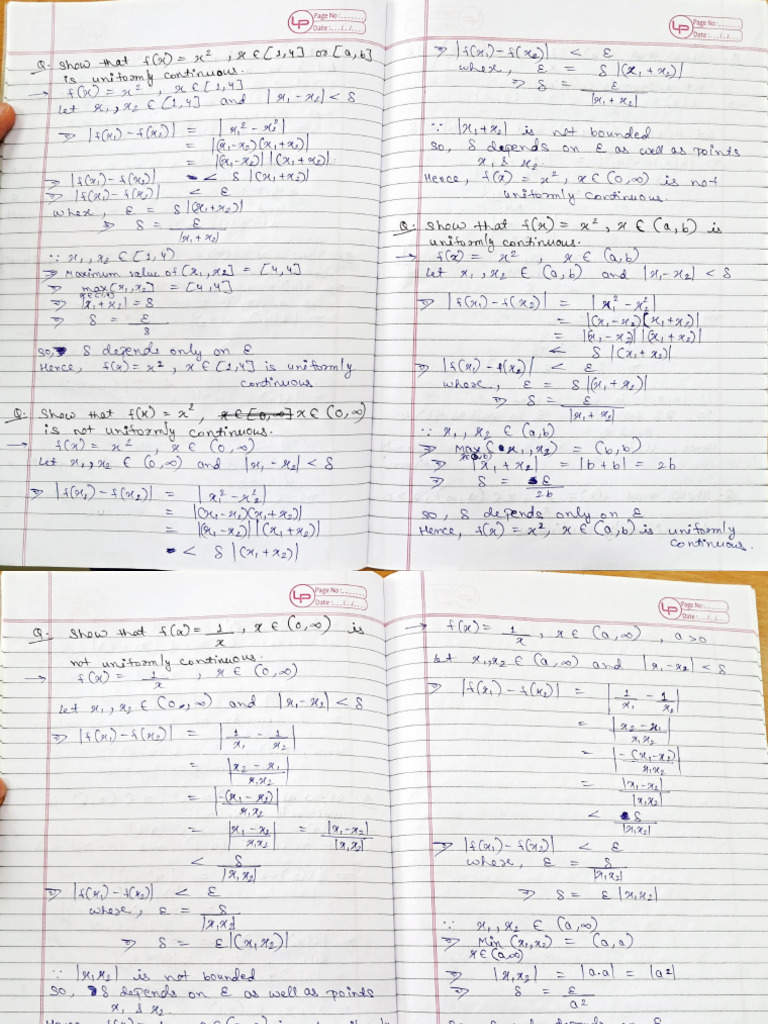 LP Page No:
Date: / /
Q. Show that f(x) = x², x ∈ [1,4] or [a,b]
is uniformly continuous.
→ f(x) = x², x ∈ [1,4]
Let x₁, x₂ ∈ [1,4] and |x₁-x₂| < δ
⇒ |f(x₁) - f(x₂)| = |x₁² - x₂²|
= |(x₁-x₂)(x₁+x₂)|
= |(x₁-x₂)| |(x₁+x₂)|
⇒ |f(x₁) - f(x₂)| < δ |(x₁+x₂)|
⇒ |f(x₁) - f(x₂)| < ε
where, ε = δ |(x₁+x₂)|
⇒ δ = ε / |x₁+x₂|
∵ x₁, x₂ ∈ [1,4]
⇒ Maximum value of [x₁,x₂] = [4,4]
⇒ max [x₁,x₂] = [4,4]
x∈[1,4]
⇒ |x₁+x₂| = 8
⇒ δ = ε / 8
So, δ depends only on ε
Hence, f(x) = x², x ∈ [1,4] is uniformly
continuous
Q. Show that f(x) = x², x ∈ (0,∞)
is not uniformly continuous.
→ f(x) = x², x ∈ (0,∞)
Let x₁, x₂ ∈ (0,∞) and |x₁-x₂| < δ
⇒ |f(x₁) - f(x₂)| = |x₁² - x₂²|
= |(x₁-x₂)(x₁+x₂)|
= |(x₁-x₂)| |(x₁+x₂)|
< δ |(x₁+x₂)|
LP Page No:
Date: / /
⇒ |f(x₁) - f(x₂)| < ε
where, ε = δ |(x₁+x₂)|
⇒ δ = ε / |x₁+x₂|
∵ |x₁+x₂| is not bounded
So, δ depends on ε as well as points
x₁ & x₂
Hence, f(x) = x², x ∈ (0,∞) is not
uniformly continuous.
Q. Show that f(x) = x², x ∈ (a,b) is
uniformly continuous.
→ f(x) = x², x ∈ (a,b)
Let x₁, x₂ ∈ (a,b) and |x₁-x₂| < δ
⇒ |f(x₁) - f(x₂)| = |x₁² - x₂²|
= |(x₁-x₂)(x₁+x₂)|
= |(x₁-x₂)| |(x₁+x₂)|
< δ |(x₁+x₂)|
⇒ |f(x₁) - f(x₂)| < ε
where, ε = δ |(x₁+x₂)|
⇒ δ = ε / |x₁+x₂|
∵ x₁, x₂ ∈ (a,b)
⇒ max (x₁,x₂) = (b,b)
x∈(a,b)
⇒ |x₁+x₂| = |b+b| = 2b
⇒ δ = ε / 2b
So, δ depends only on ε
Hence, f(x) = x², x ∈ (a,b) is uniformly
continuous.
LP Page No:
Date: / /
Q. Show that f(x) = 1/x, x ∈ (0,∞) is
not uniformly continuous.
→ f(x) = 1/x, x ∈ (0,∞)
Let x₁, x₂ ∈ (0,∞) and |x₁-x₂| < δ
⇒ |f(x₁) - f(x₂)| = |1/x₁ - 1/x₂|
= |x₂ - x₁ / x₁x₂|
= |-(x₁-x₂) / x₁x₂|
= |x₁-x₂ / x₁x₂| = |x₁-x₂| / |x₁x₂|
< δ / |x₁x₂|
⇒ |f(x₁) - f(x₂)| < ε
where, ε = δ / |x₁x₂|
⇒ δ = ε |(x₁x₂)|
∵ |x₁x₂| is not bounded
So, δ depends on ε as well as points
x₁ & x₂.
LP Page No:
Date: / /
→ f(x) = 1/x, x ∈ (a,∞), a>0
Let x₁, x₂ ∈ (a,∞) and |x₁-x₂| < δ
⇒ |f(x₁) - f(x₂)| = |1/x₁ - 1/x₂|
= |x₂ - x₁ / x₁x₂|
= |-(x₁-x₂) / x₁x₂|
= |x₁-x₂| / |x₁x₂|
< δ / |x₁x₂|
⇒ |f(x₁) - f(x₂)| < ε
where, ε = δ / |x₁x₂|
⇒ δ = ε |x₁x₂|
∵ x₁, x₂ ∈ (a,∞)
⇒ Min (x₁,x₂) = (a,a)
x∈(a,∞)
⇒ |x₁x₂| = |a·a| = |a²|
⇒ δ = ε / a²